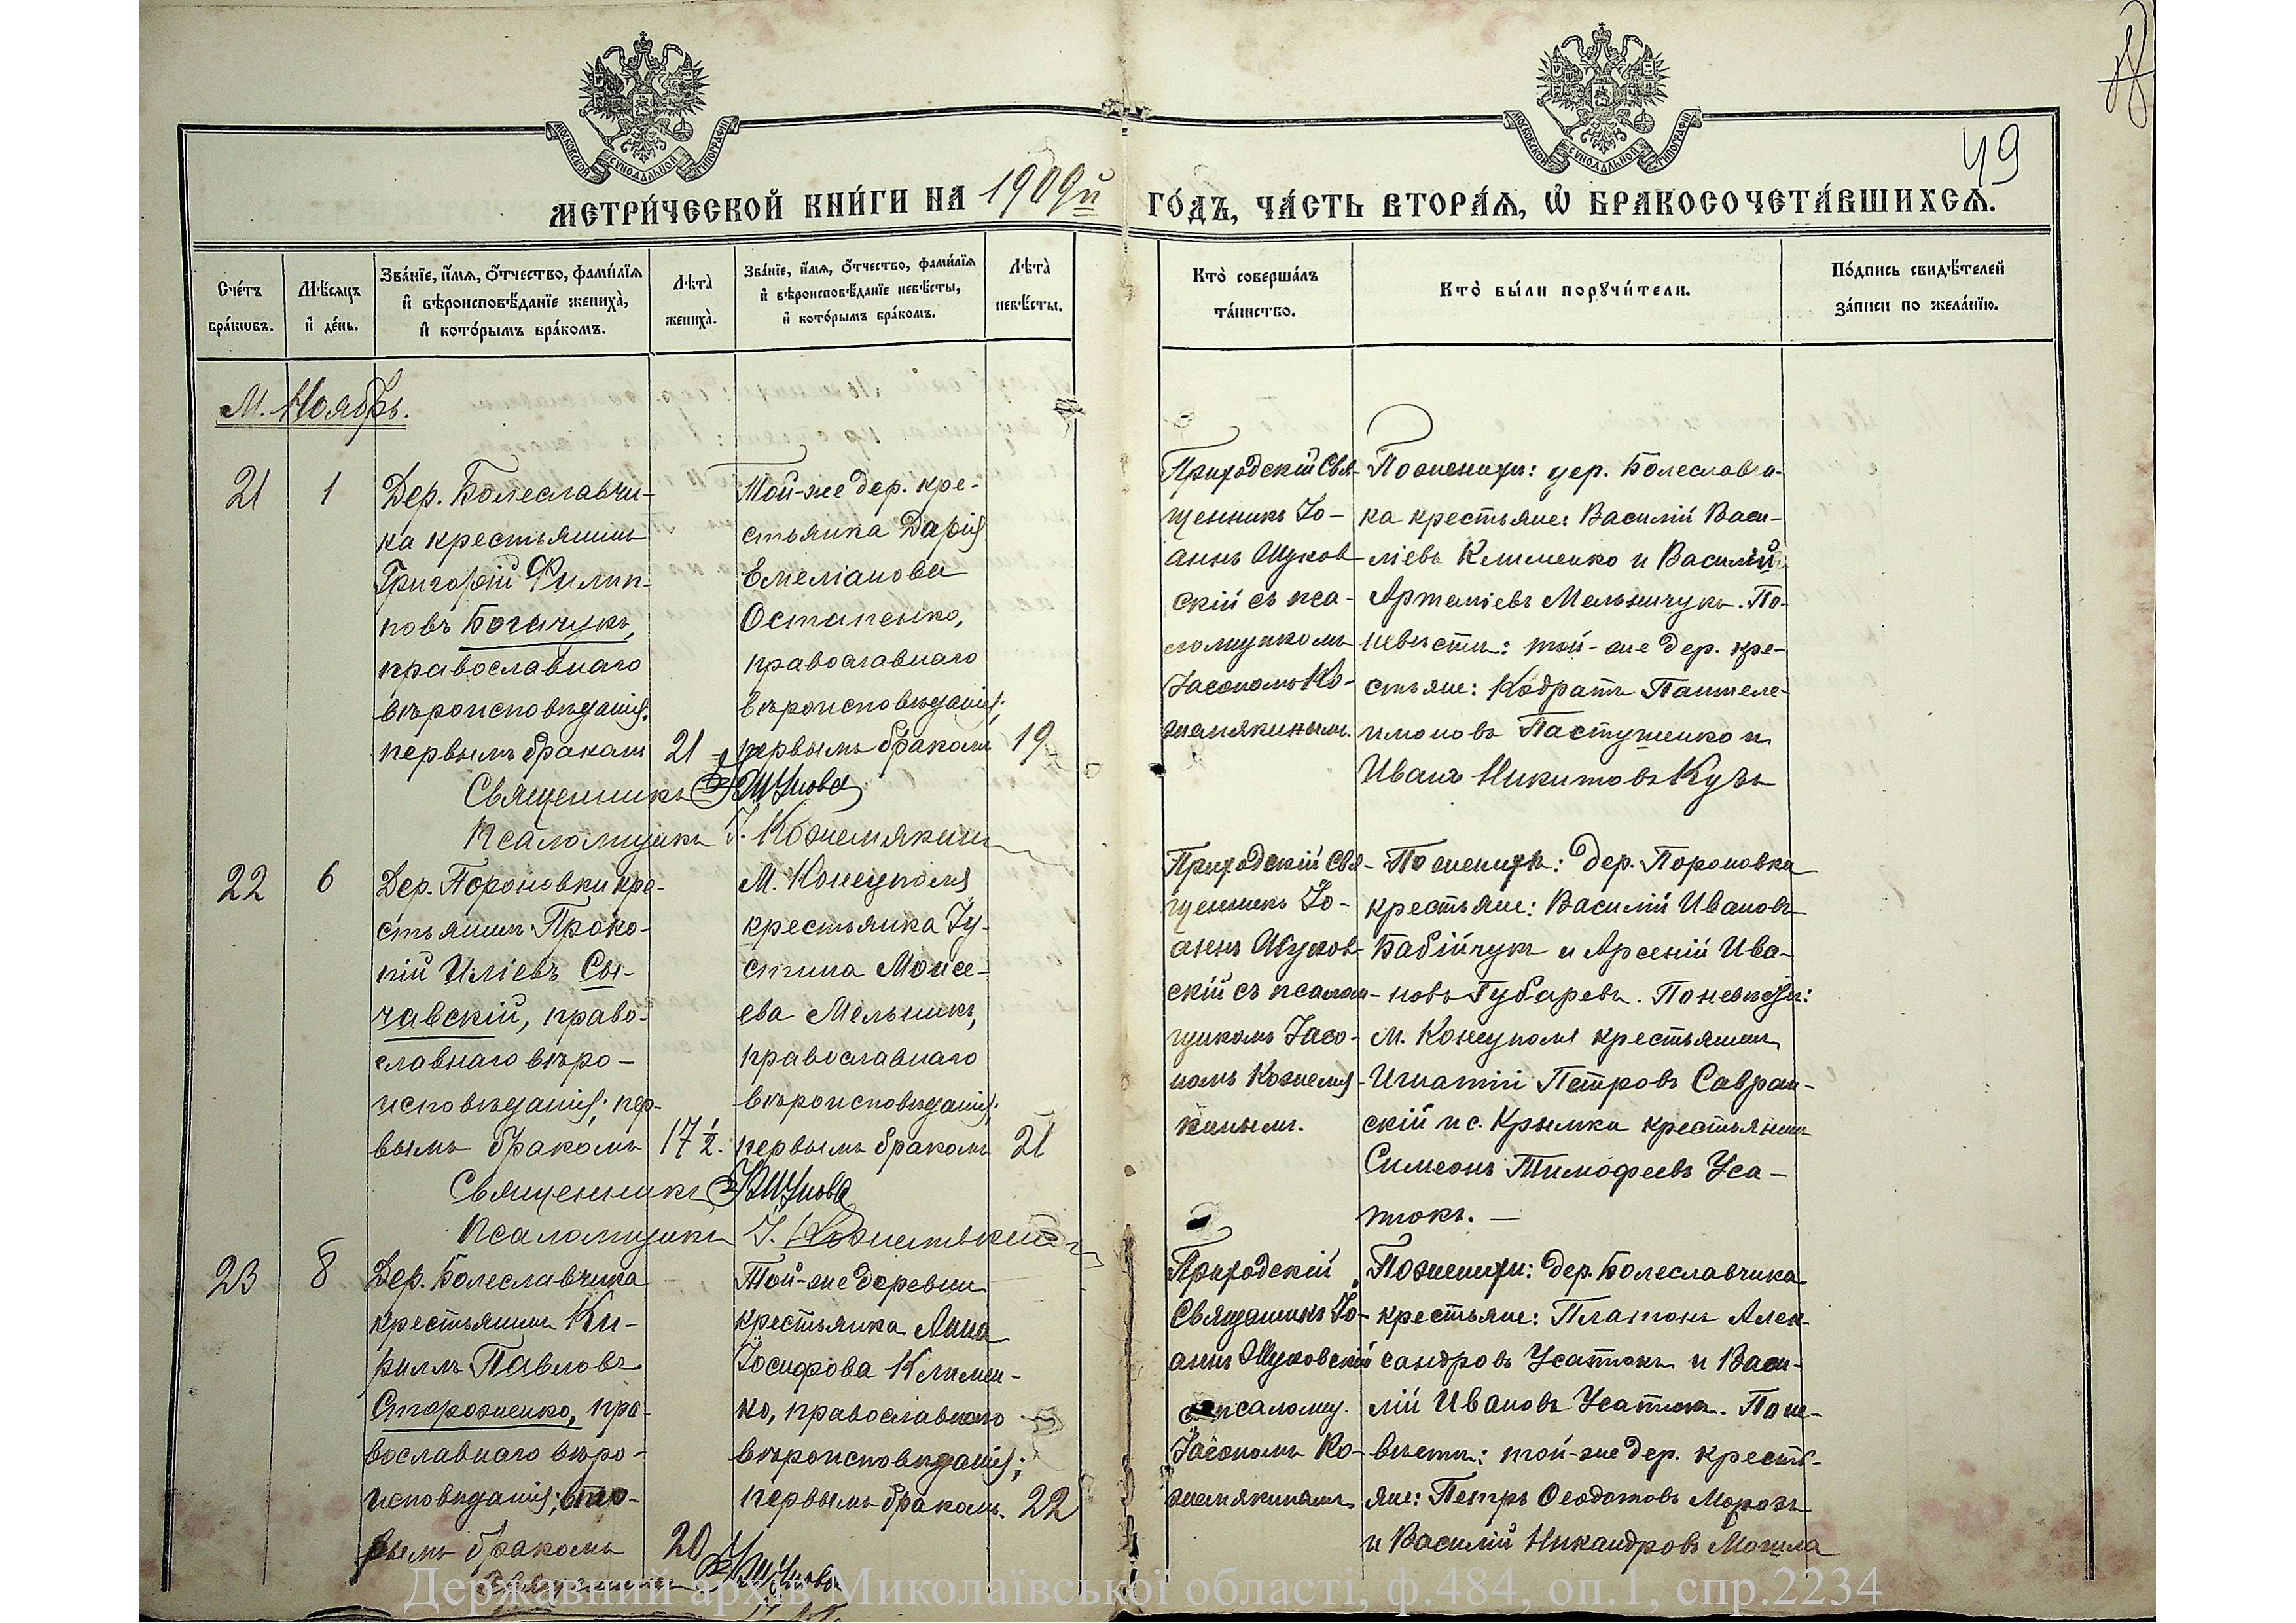 49
МОСКОВСКОЙ СѴНОДАЛЬНОЙ ТИПОГРАФІИ
МОСКОВСКОЙ СѴНОДАЛЬНОЙ ТИПОГРАФІИ
МЕТРИ́ЧЕСКОЙ КНИ́ГИ НА 1909й ГО́ДЪ, ЧА́СТЬ ВТОРА́Ѧ, Ѡ҆ БРАКОСОЧЕТА́ВШИХСѦ.
Сче́тъ бра́кѡвъ.
Мѣ́сяцъ и҆ де́нь.
Зва́нїе, и҆́мѧ, о҆́тчество, фами́лїѧ и҆ вѣроисповѣ́данїе жениха̀, и҆ кото́рымъ бра́комъ.
Лѣта̀ жениха̀.
Зва́нїе, и҆́мѧ, о҆́тчество, фами́лїѧ и҆ вѣроисповѣ́данїе невѣ́сты, и҆ кото́рымъ бра́комъ.
Лѣта̀ невѣ́сты.
Кто̀ соверша́лъ та́инство.
Кто̀ бы́ли порꙋчи́тели.
По́дпись свидѣ́телей за́писи по жела́нїю.
М. Ноябрь.
21
1
Дер. Болеславчи-
ка крестьянинъ
Григорій Филип-
повъ Богачукъ,
православнаго
вѣроисповѣданія,
первымъ бракомъ
21
Той-же дер. кре-
стьянка Дарія
Емеліанова
Остапенко,
православнаго
вѣроисповѣданія;
первымъ бракомъ
19
Священникъ
Псаломщикъ І. Кожемякинъ
Приходскій Свя-
щенникъ Іо-
аннъ Жуков
скій съ пса-
ломщикомъ
Іасономъ Ко-
жемякинымъ.
По женихѣ: дер. Болеславчи-
ка крестьяне: Василій Васи-
ліевъ Клименко и Василій
Артеміевъ Мельничукъ. По-
невѣстѣ: той-же дер. кре-
стьяне: Кодратъ Пантеле-
имоновъ Пастушенко и
Иванъ Никитовъ Кузь
22
6
Дер. Пороновки кре-
стьянинъ Проко-
пій Иліевъ Сы-
чавскій, право-
славнаго вѣро-
исповѣданія; пер-
вымъ бракомъ
17 ½.
М. Конецполя
крестьянка Іу-
стина Моисе-
ева Мельникъ,
православнаго
вѣроисповѣданія;
первымъ бракомъ
21
Священникъ
Псаломщикъ І. Кожемякинъ
Приходскій Свя-
щенникъ Іо-
аннъ Жуков
скій съ псалом-
щикомъ Іасо-
номъ Кожемя-
кинымъ.
По женихѣ: дер. Пороновка
крестьяне: Василій Ивановъ
Бабійчукъ и Арсеній Ива-
новъ Губаревъ. По невѣстѣ:
м. Конецполя крестьянинъ
Игнатій Петровъ Савран-
скій и с. Крымка крестьянинъ
Симеонъ Тимофеевъ Уса-
тюкъ.
23
8
Дер. Болеславчика
крестьянинъ Ки-
риллъ Павловъ
Стороженко, пра-
вославнаго вѣро-
исповѣданія; вто-
рымъ бракомъ
20
Той-же деревни
крестьянка Анна
Іосифова Климен-
ко, православнаго
вѣроисповѣданія;
первымъ бракомъ.
22
Священникъ
Приходскій
Священникъ Іо-
аннъ Жуковскій
съ псаломщ.
Іасономъ Ко-
жемякинымъ
По женихѣ: дер. Болеславчика
крестьяне: Платонъ Алек-
сандровъ Усатюкъ и Васи-
лій Ивановъ Усатюкъ. По не-
вѣстѣ: той-же дер. кресть-
яне: Петръ Ѳеодотовъ Морозъ
и Василій Никандровъ Могила
Державний архів Миколаївської області, ф.484, оп.1, спр.2234